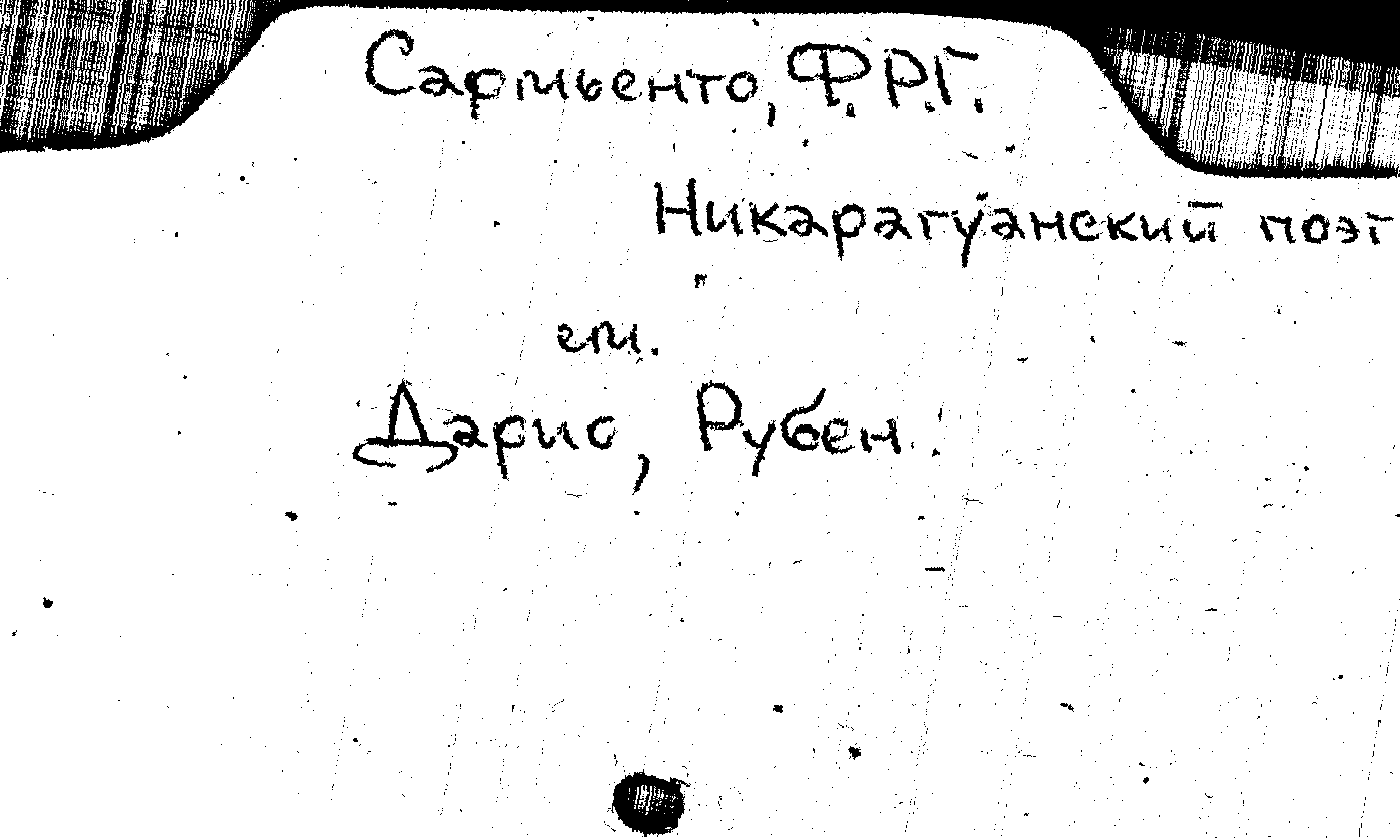 Сармьенто, Ф.Р.Г.
Никарагуанский поэт
см.
Дарио, Рубен.